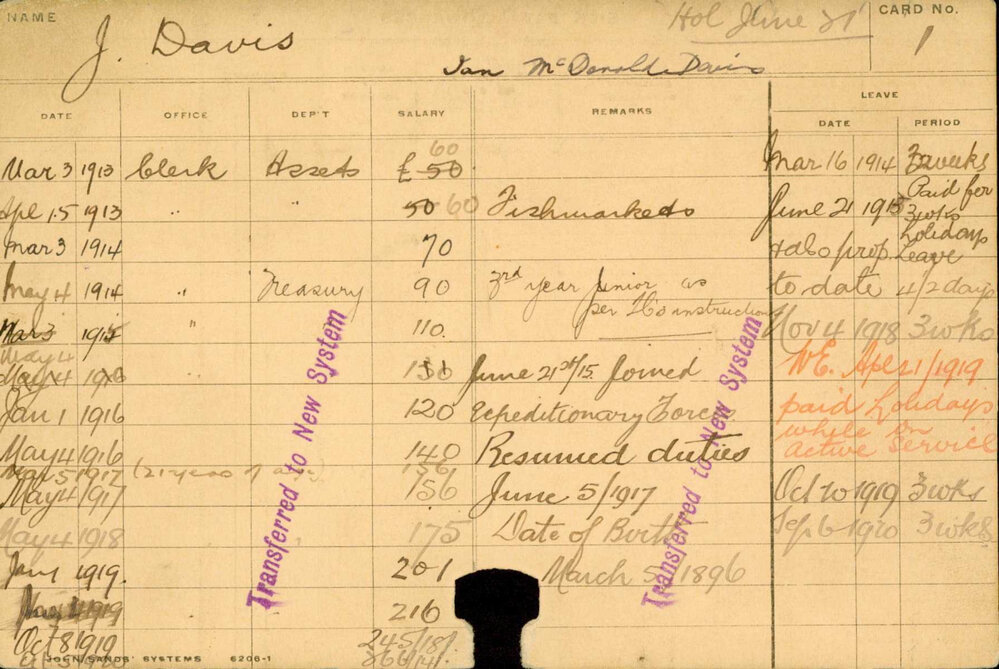 NAME J. Davis Hol June 21 CARD No. 1
Ian McDonald Davis
DATE OFFICE DEP'T SALARY REMARKS LEAVE
DATE PERIOD
60
Mar 3 1913 Clerk Assets £ 50 Mar 16 1914 3 weeks
Apl 15 1913 " " 50 60 Fishmarkets June 21 1915 Paid for 3 wks holidays
Mar 3 1914 70 Also prop. Leave
May 4 1914 " Treasury 90 3rd year Junior as to date 4/2 days
per Ho instructions
Mar 3 1915 " 110. Nov 4 1918 3 wks
May 4
June 21st/15 Joined WE. Apl 21/1919
Jan 1 1916 120 Expeditionary Forces paid holidays
while on
May 4 1916 140 Resumed duties Active Service
May 5 1917 (21 years of age).
May 4 1917 156 June 5/1917 Oct 20 1919 3 wks
May 4 1918 175 Date of Birth Sep 6 1920 3 wks
Jan 1 1919. 201 March 5 1896
1919 216
Oct 8 1919 245/18/.
366/14/.
JOHN SANDS' SYSTEMS 6206-1
Transferred to New System
Transferred to New System